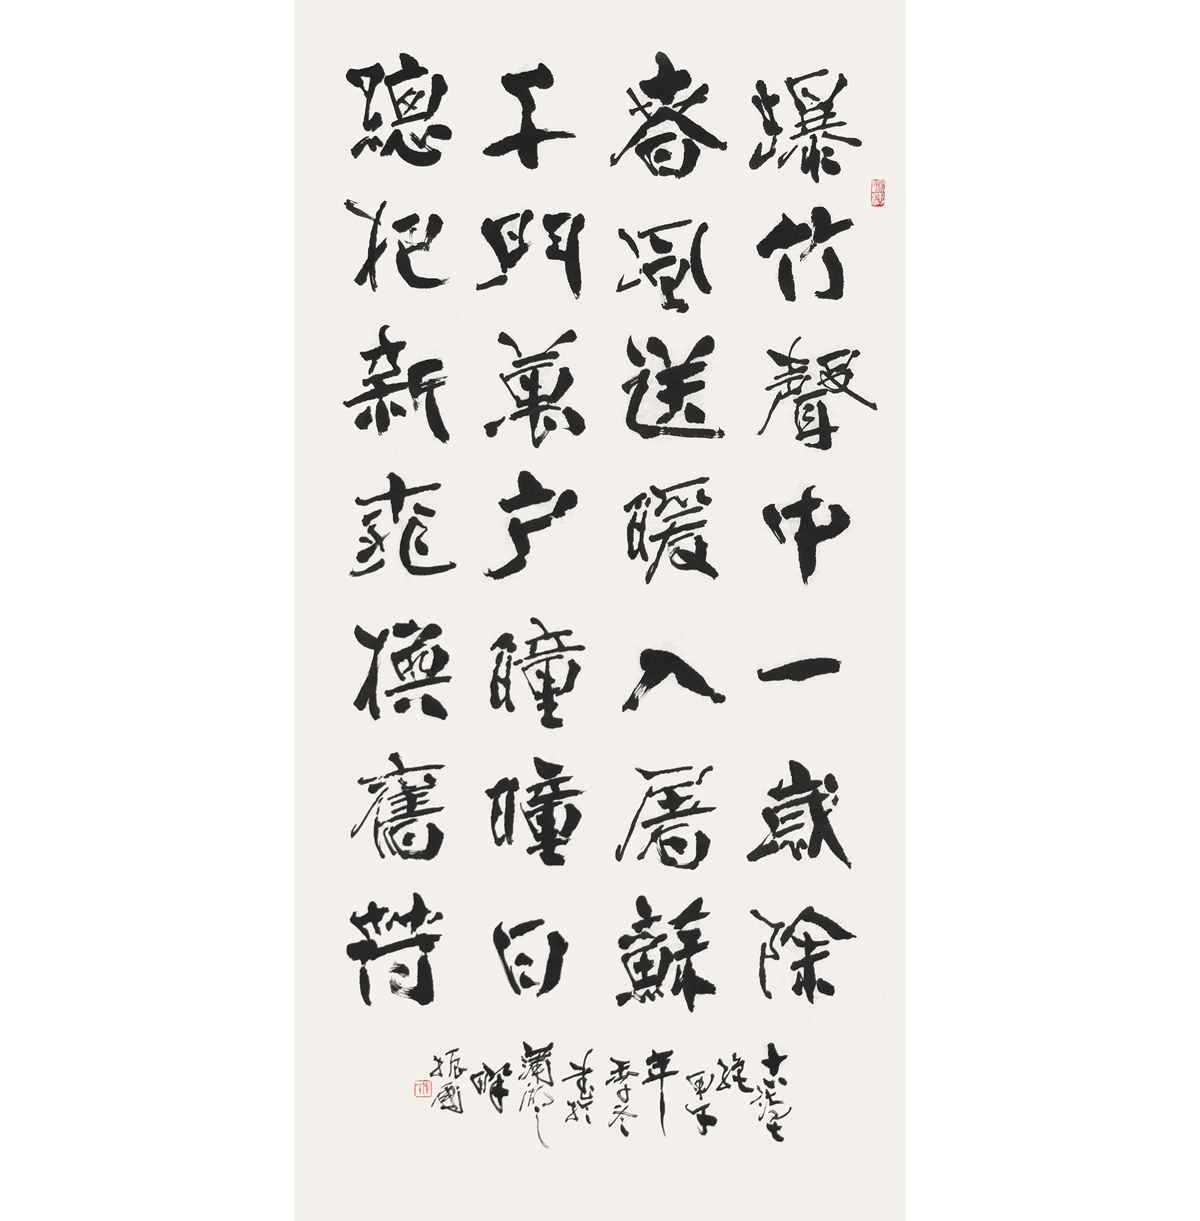 爆竹聲中一歲除
春風送暖入屠蘇
千門萬戶瞳瞳日
總把新桃換舊符
甲午
年
季冬
書於
畔
振國